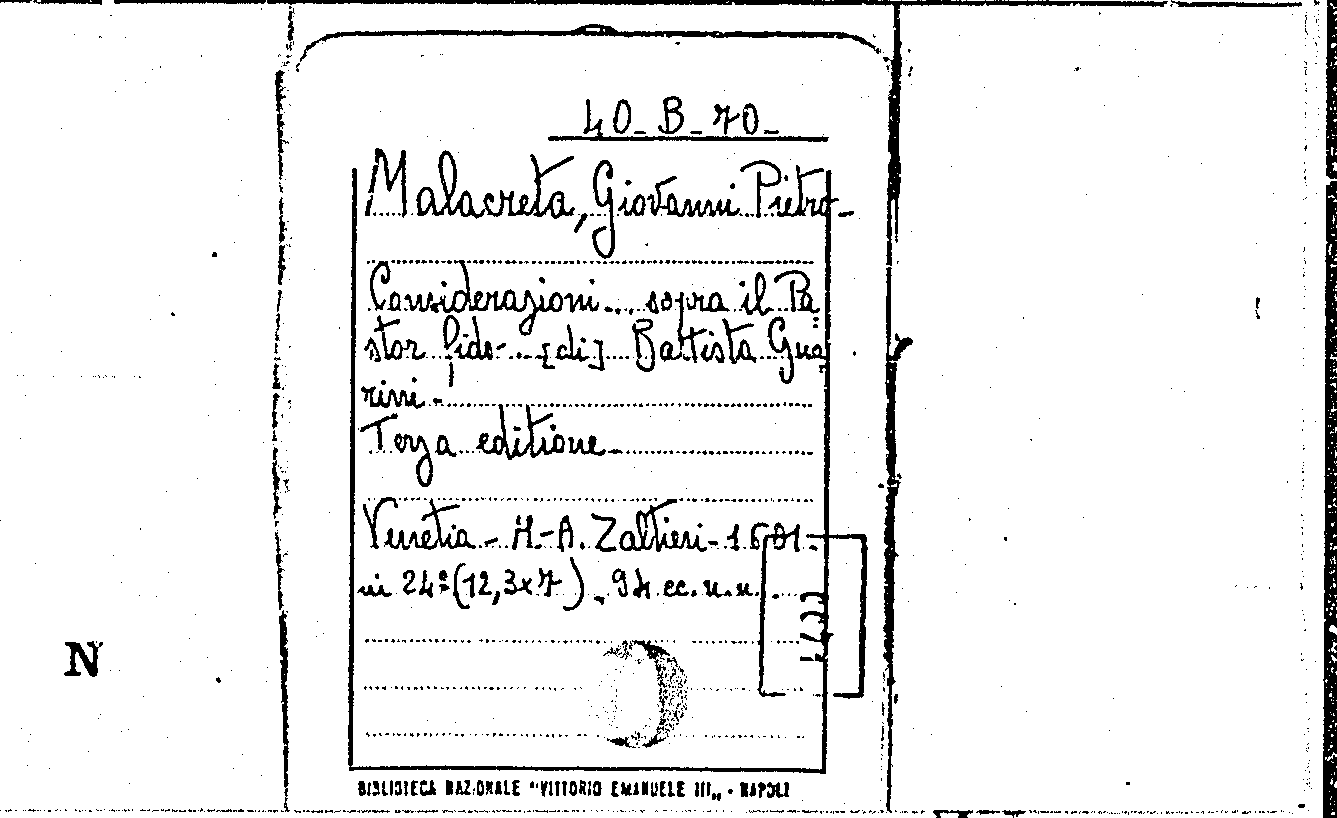 40-B-70-
Malacreta, Giovanni Pietro-
Considerazioni... sopra il Pa
stor fido-... [di] Battista Gua
rini-
Terza editione-
Venetia - M-A. Zaltieri-1601-
in 24º (12,3x7) - 94 cc.n.n.
N
BIBLIOTECA NAZIONALE "VITTORIO EMANUELE III„ - NAPOLI